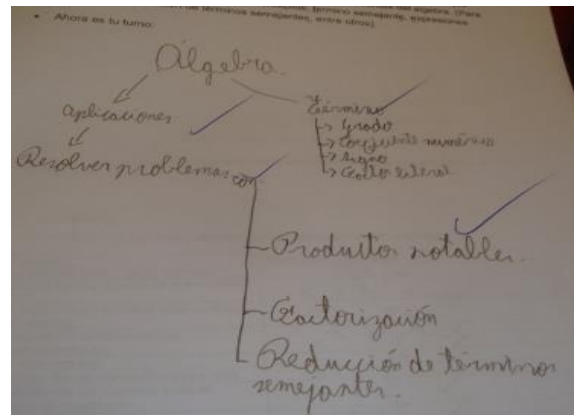 término semejante, expresiones
de términos semejantes, entre otros)
• Ahora es tu turno:
Álgebra.
aplicaciones
Término
→ Grado
→ Coeficiente numérico
→ Signo
→ Factor literal
Resolver problemas con
Productos notables.
Factorización
Reducción de términos
semejantes.